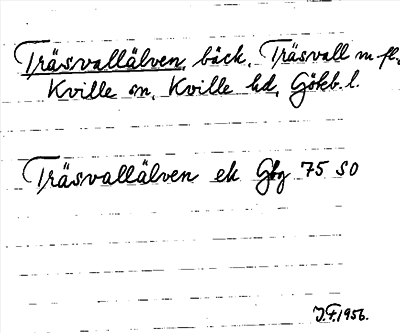 Träsvallälven, bäck, Träsvall m fl,
Kville sn, Kville hd, Göteb. l.
Träsvallälven ek Gbg 75 SO
J.F. 1956.